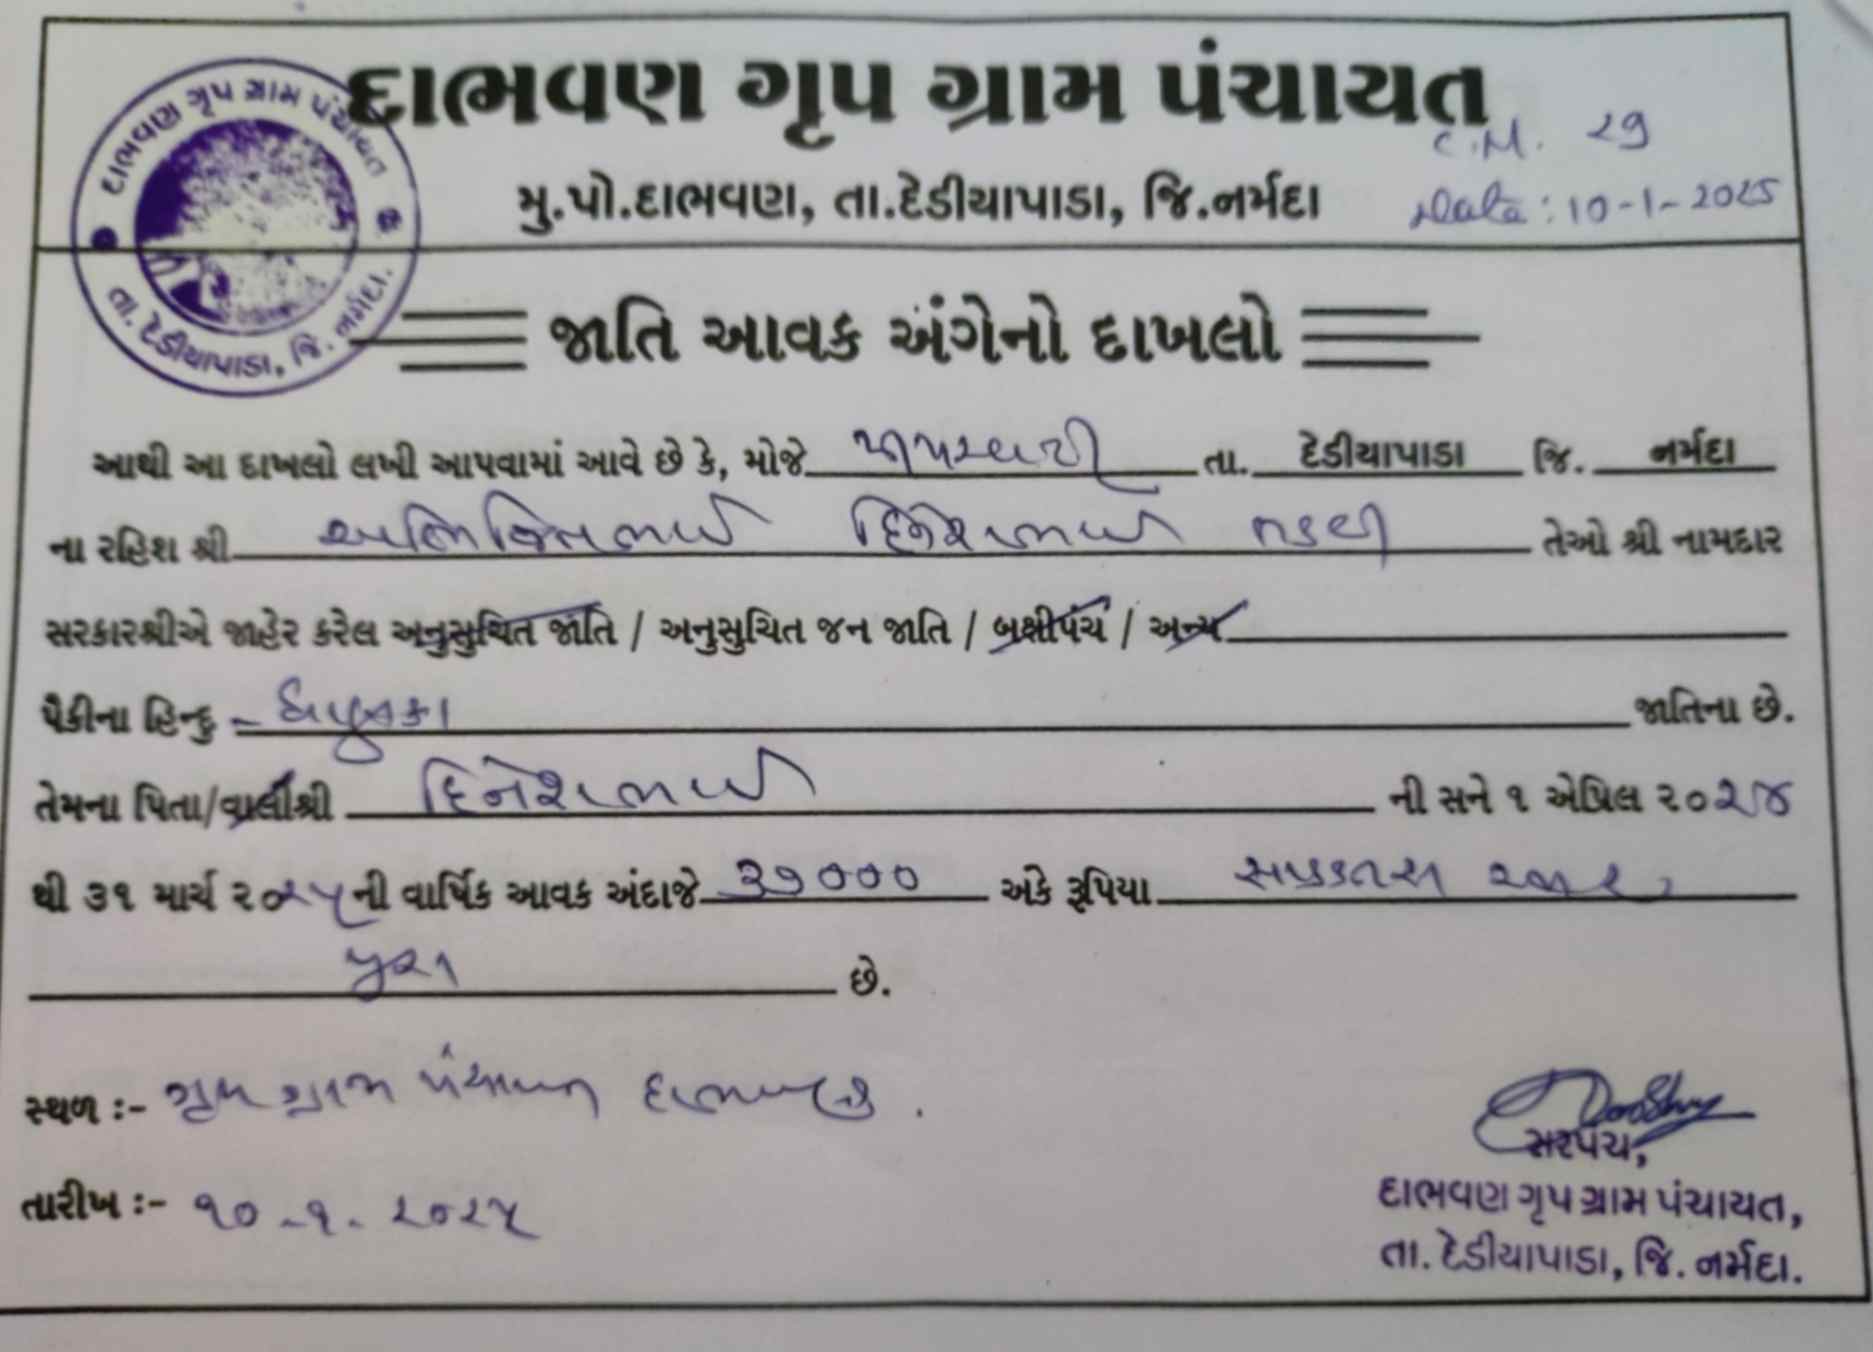 દાભવણ ગૃપ ગ્રામ પંચાયત
C.M. ૨૭
મુ.પો.દાભવણ, તા.દેડીયાપાડા, જિ.નર્મદા
Date : 10-1-2025
દાભવણ ગૃપ ગ્રામ પંચાયત
તા. દેડીયાપાડા, જિ. નર્મદા.
જાતિ આવક અંગેનો દાખલો
આથી આ દાખલો લખી આપવામાં આવે છે કે, મોજે તા. દેડીયાપાડા જિ. નર્મદા
ના રહિશ શ્રી દિનેશભાઈ તડવી તેઓ શ્રી નામદાર
સરકારશ્રીએ જાહેર કરેલ અનુસુચિત જાતિ / અનુસુચિત જન જાતિ / બક્ષીપંચ / અન્ય
પૈકીના હિન્દુ - જાતિના છે.
તેમના પિતા/વાલીશ્રી દિનેશભાઈ ની સને ૧ એપ્રિલ ૨૦૨૪
થી ૩૧ માર્ચ ૨૦૨૫ ની વાર્ષિક આવક અંદાજે ૩૭૦૦૦ અકે રૂપિયા
પુરા છે.
સ્થળ :- ગૃપ ગ્રામ પંચાયત દાભવણ .
તારીખ :- ૧૦-૧-૨૦૨૫
સરપંચ,
દાભવણ ગૃપ ગ્રામ પંચાયત,
તા. દેડીયાપાડા, જિ. નર્મદા.